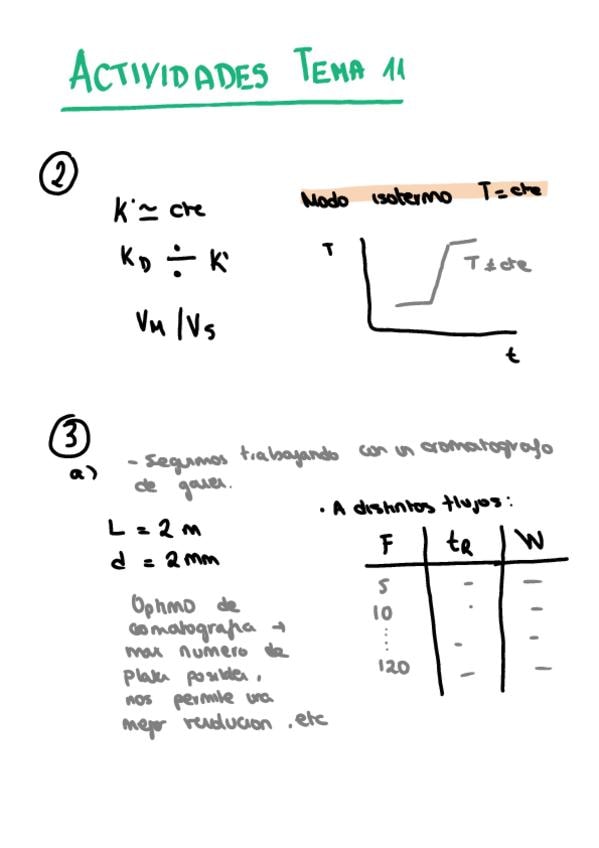 ACTIVIDADES TEMA 11
2
K' ≃ cte
K_D ÷ K'
V_M / V_S
Modo isotermo T = cte
T
T ≠ cte
t
3
a)
- Seguimos trabajando con un cromatografo
de gases.
L = 2 m
d = 2 mm
Optimo de
cromatografia →
max numero de
platos posibles,
nos permite una
mejor resolucion, etc
· A distintos flujos:
F t_R W
5 - -
10 · -
⋮ - -
120 - -